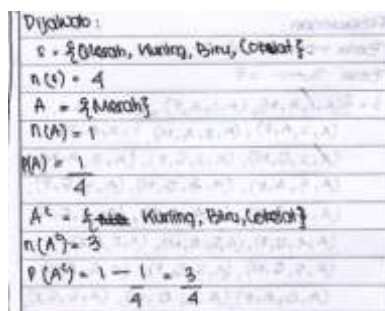 Dijawab :
S = {Merah, Kuning, Biru, Cokelat}
n(s) = 4
A = {Merah}
n(A) = 1
P(A) = 1/4
Aᶜ = {Kuning, Biru, Cokelat}
n(Aᶜ) = 3
P(Aᶜ) = 1 - 1/4 = 3/4